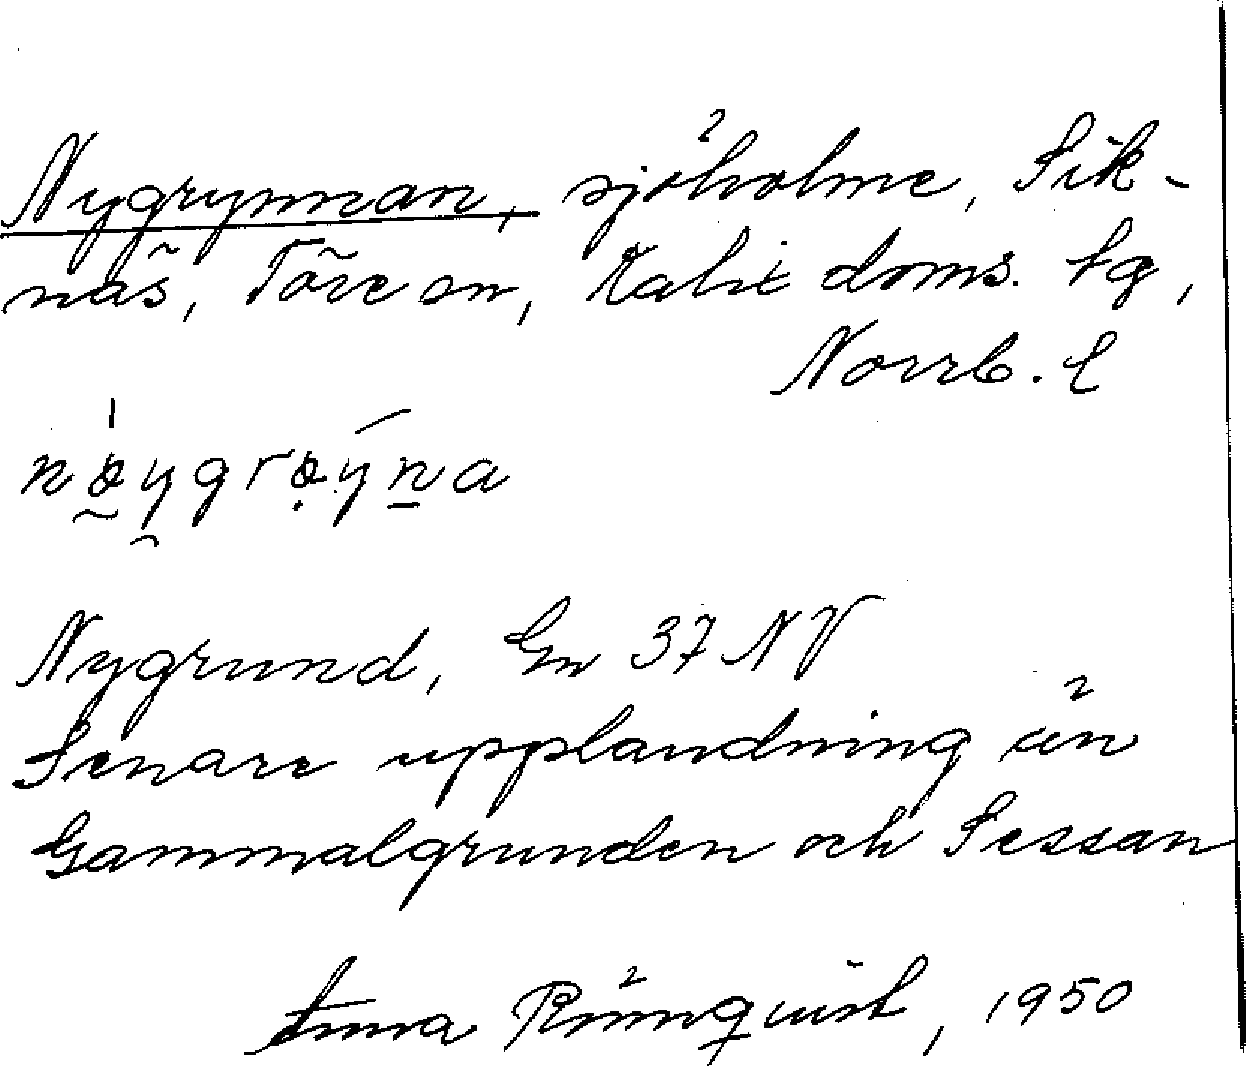 Nygrynnan, sjöholme, Sik-
näs, Töre sn, Kalix doms. tg,
Norrb. l
nøygrøyna
Nygrund, En 37 NV
Senare upplandning än
Gammalgrunden och Sessan
Anna Rönnquist, 1950